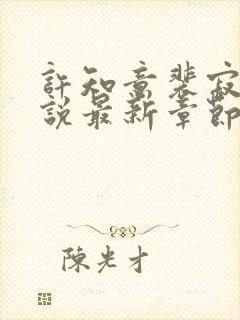 許知意裴寂
說最新章節
陳光才